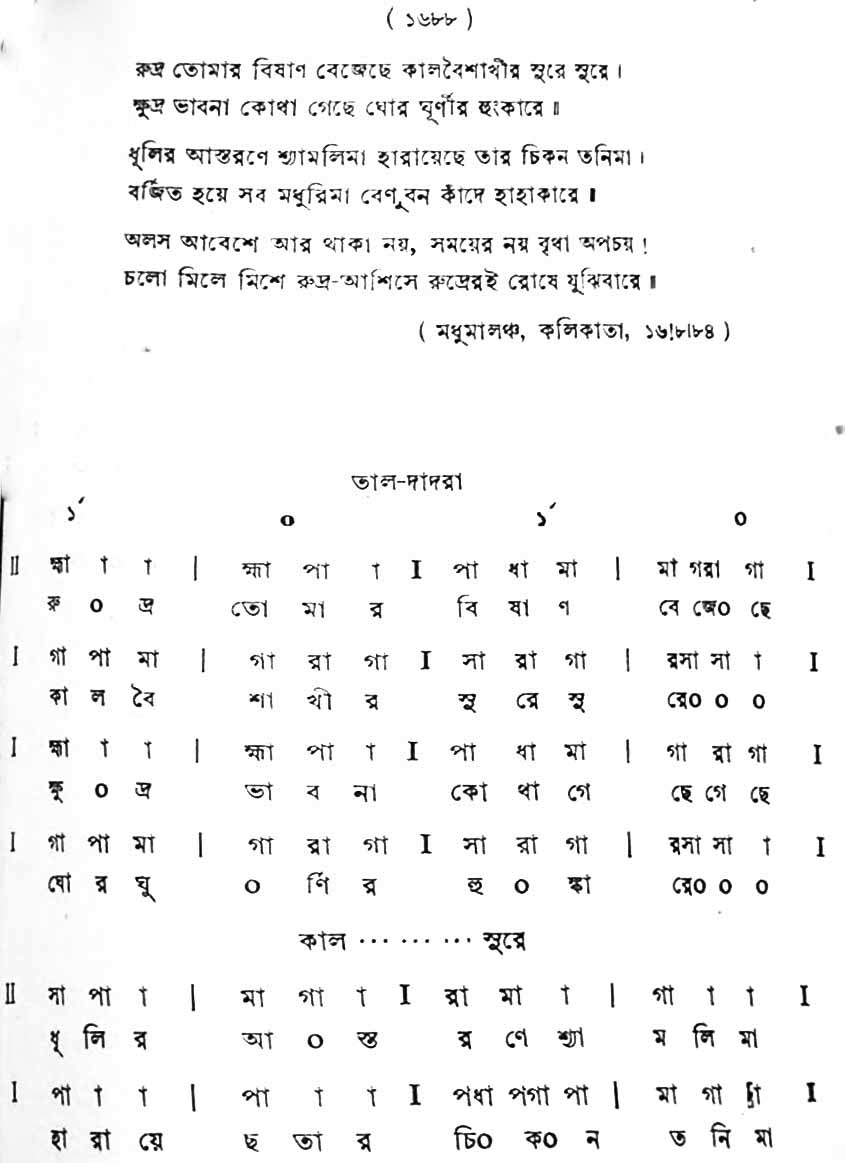 ( ১৬৮৮ )
রুদ্র তোমার বিষাণ বেজেছে কালবৈশাখীর সুরে সুরে ।
ক্ষুদ্র ভাবনা কোথা গেছে ঘোর ঘূর্ণীর হুংকারে ॥
ধূলির আস্তরণে শ্যামলিমা হারায়েছে তার চিকন তনিমা ।
বর্জিত হয়ে সব মধুরিমা বেণুবন কাঁদে হাহাকারে ॥
অলস আবেশে আর থাকা নয়, সময়ের নয় বৃথা অপচয় !
চলো মিলে মিশে রুদ্র-আশিসে রুদ্রেরই রোষে যুঝিবারে ॥
( মধুমালঞ্চ, কলিকাতা, ১৬।৮।৮৪ )
তাল-দাদরা
১´ ০ ১´ ০
II হ্মা া া | হ্মা পা া I পা ধা মা | মা গরা গা I
রু ০ দ্র তো মা র বি ষা ণ বে জে০ ছে
I গা পা মা | গা রা গা I সা রা গা | রসা সা া I
কা ল বৈ শা খী র সু রে সু রে০ ০ ০
I হ্মা া া | হ্মা পা া I পা ধা মা | গা রা গা I
ক্ষু ০ দ্র ভা ব না কো থা গে ছে গে ছে
I গা পা মা | গা রা গা I সা রা গা | রসা সা া I
ঘো র ঘু ০ র্ণি র হু ০ ঙ্কা রে০ ০ ০
কাল ⋯ ⋯ ⋯ সুরে
II সা পা া | মা গা া I রা মা া | গা া া I
ধূ লি র আ ০ স্ত র ণে শ্যা ম লি মা
I পা া া | পা া া I পধা পগা পা | মা গা রা I
হা রা য়ে ছ তা র চি০ ক০ ন ত নি মা